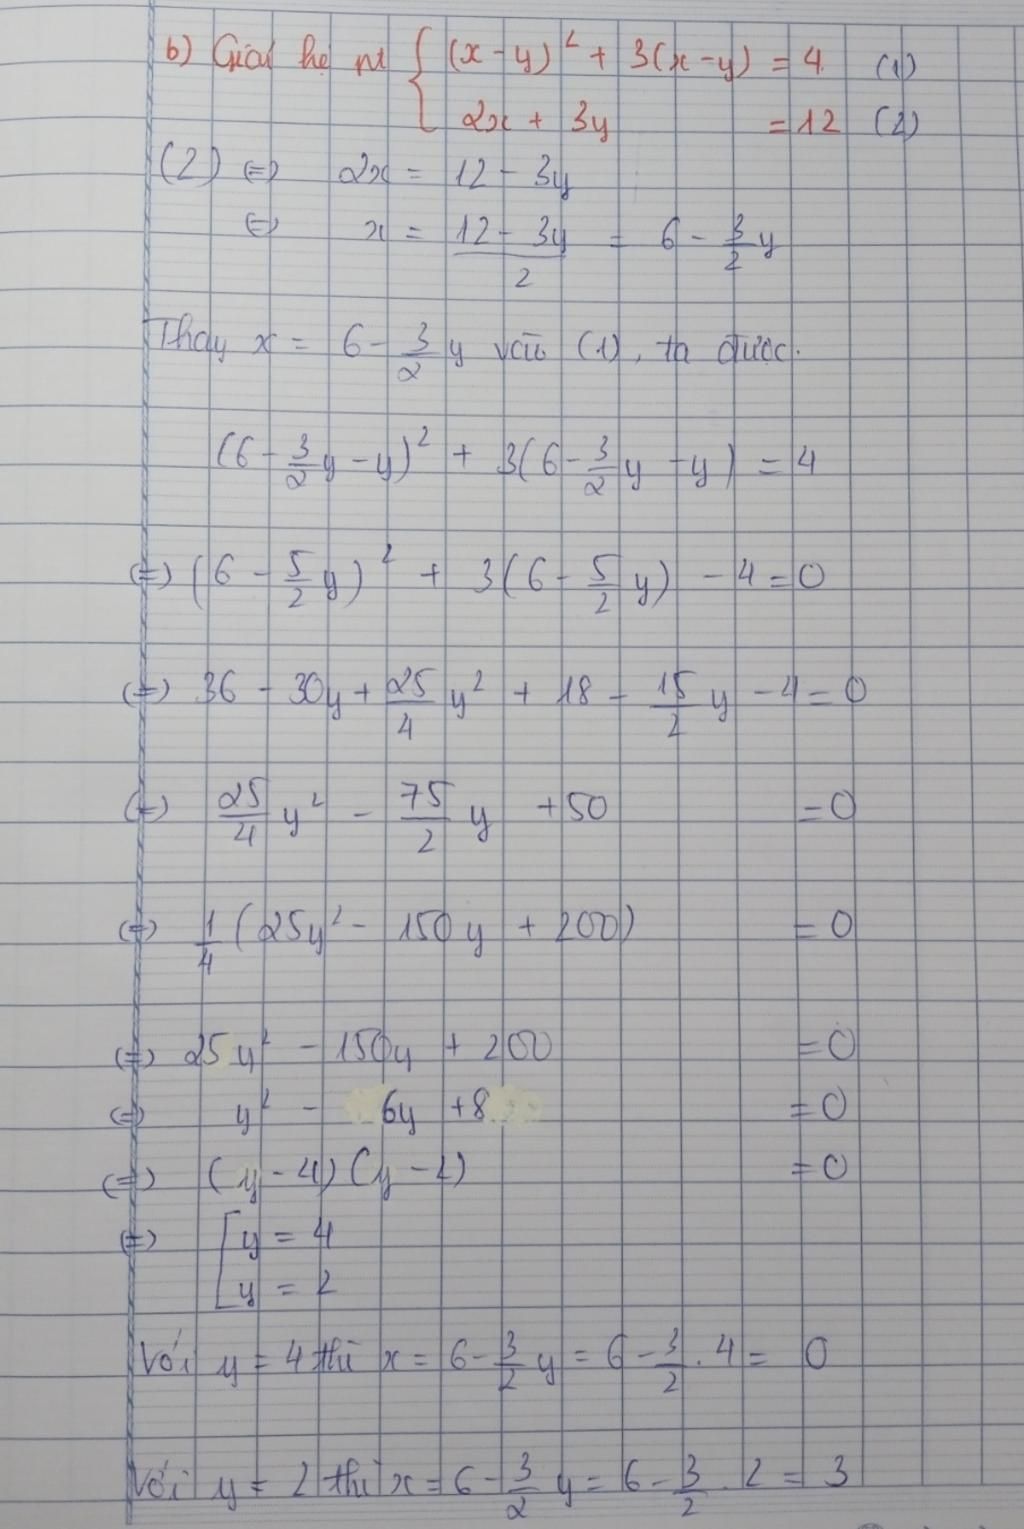 b) Giải hệ pt { (x - y)² + 3(x - y) = 4 (1)
2x + 3y = 12 (2)
(2) ⇔ 2x = 12 - 3y
⇔ x = (12 - 3y)/2 = 6 - 3/2 y
Thay x = 6 - 3/2 y vào (1), ta được.
(6 - 3/2 y - y)² + 3(6 - 3/2 y - y) = 4
⇔ (6 - 5/2 y)² + 3(6 - 5/2 y) - 4 = 0
⇔ 36 - 30y + 25/4 y² + 18 - 15/2 y - 4 = 0
⇔ 25/4 y² - 75/2 y + 50 = 0
⇔ 1/4 (25y² - 150y + 200) = 0
⇔ 25y² - 150y + 200 = 0
⇔ y² - 6y + 8 = 0
⇔ (y - 4)(y - 2) = 0
⇔ [ y = 4
y = 2
Với y = 4 thì x = 6 - 3/2 y = 6 - 3/2 . 4 = 0
Với y = 2 thì x = 6 - 3/2 y = 6 - 3/2 . 2 = 3